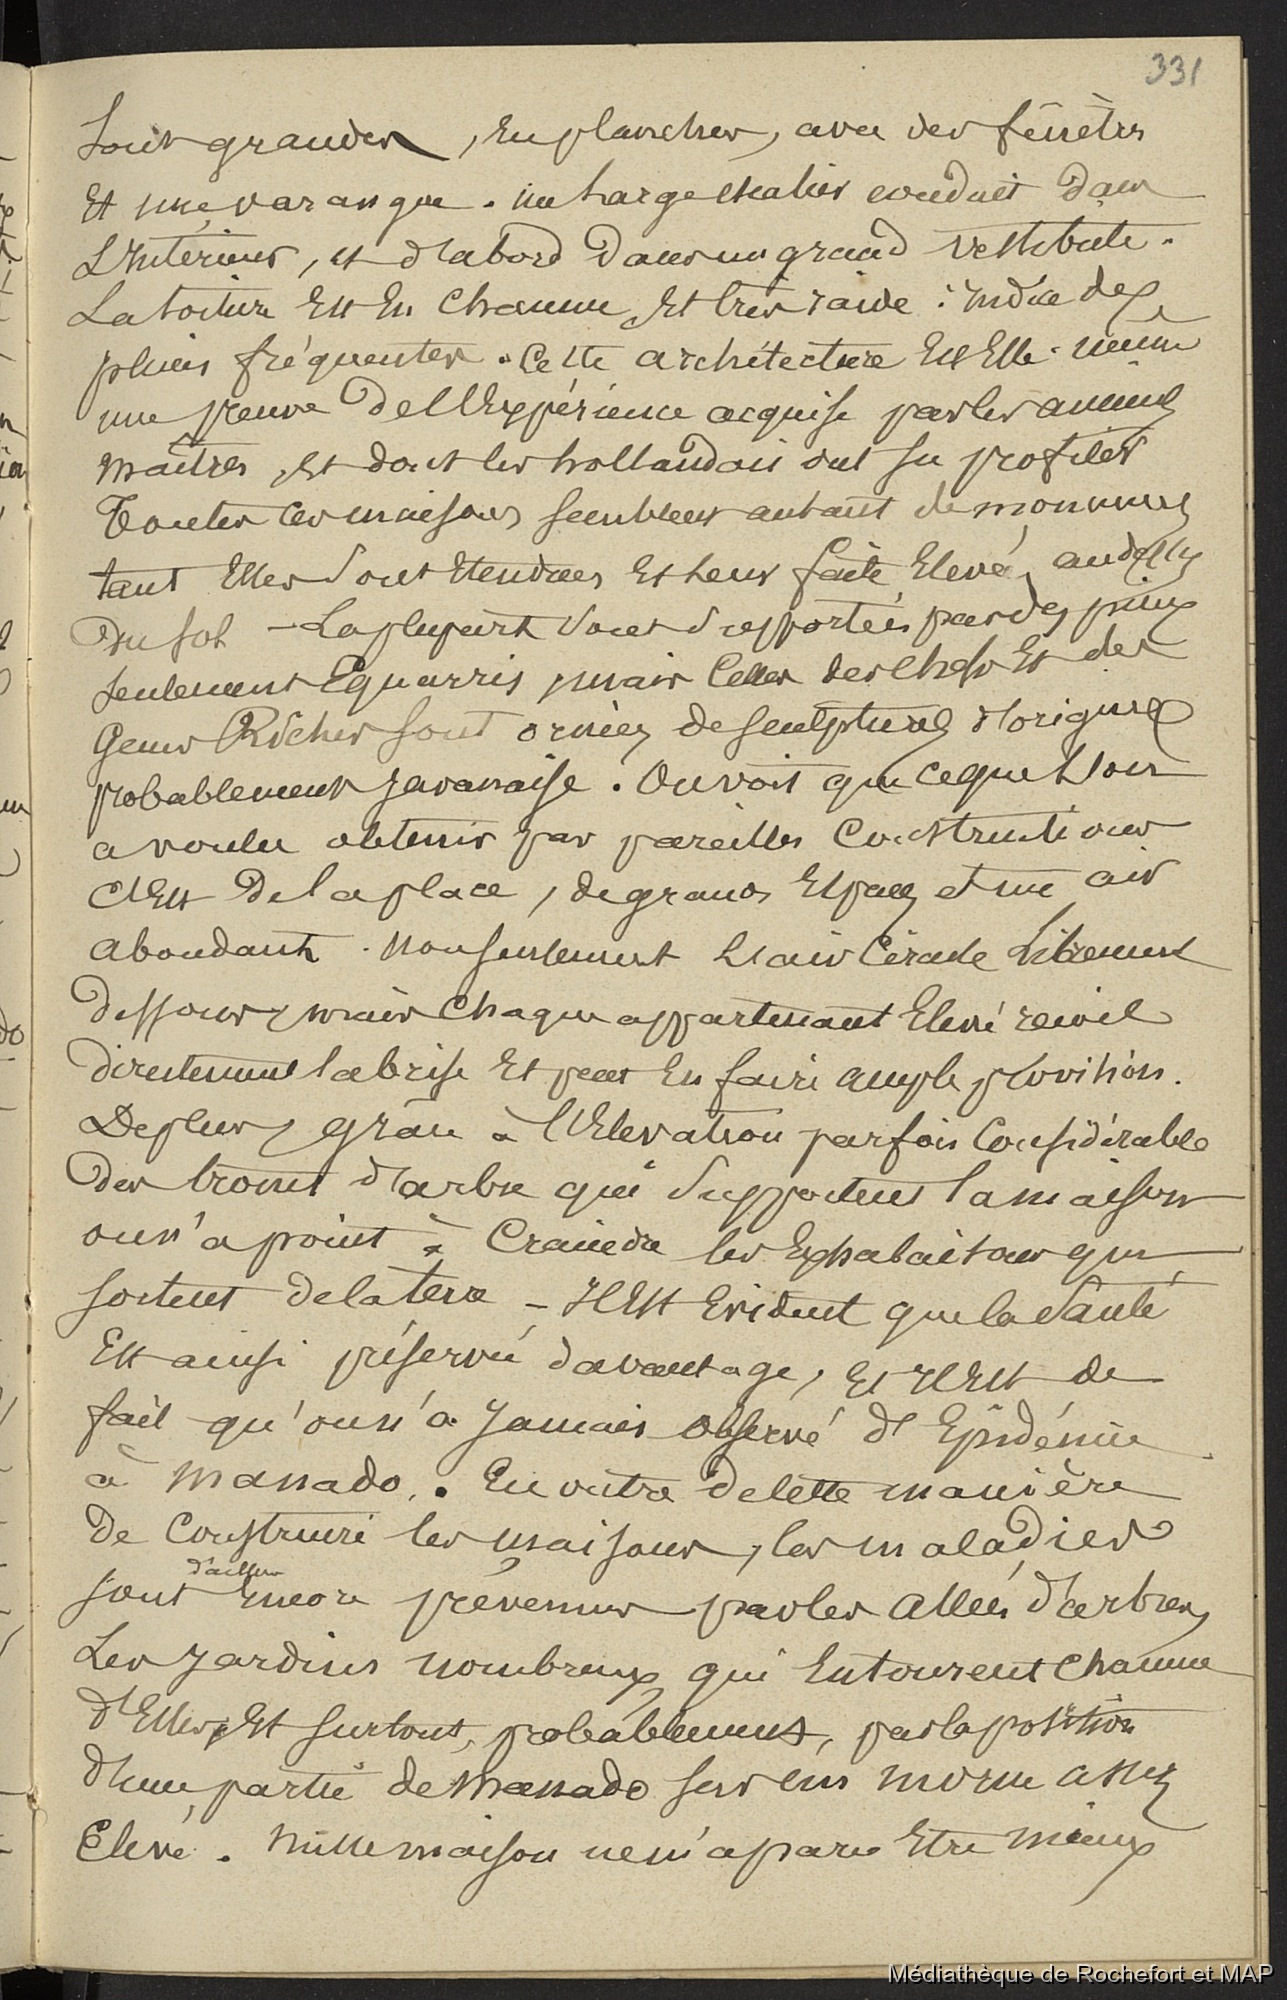 331
sont grandes, en planches, avec des fenêtres
Et une varangue. un large escalier conduit dans
L'Intérieur, et d'abord dans un grand vestibule.
La toiture Est En chaume, Et très raide : indice des
pluies fréquentes. Cette architecture Est Elle-même
une preuve de l'Expérience acquise par les anciens
maîtres, Et dont les hollandais ont su profiter
Toutes ces maisons semblent autant de monuments
tant Elles sont Etendues Et leur faîte Elevé, au dessus
Du sol - La plupart sont supportées par des pieux
seulement Equarris, mais Celles des chefs Et des
Gens Riches sont ornées de sculptures d'origine
probablement Javanaise. On voit que ce que L'on
a voulu obtenir par pareilles Constructions
C'Est De la place, de grands Espaces et un air
abondant. Non seulement L'air Circule Librement
dessous, mais chaque appartement Elevé reçoit
directement la brise Et peut En faire ample provision.
De plus, grâce à l'Elevation parfois Considérable
Des troncs d'arbre qui supportent la maison
on n'a point à Craindre les Exhalaisons qui
sortent de la terre - Il Est Evident que la Santé
Est ainsi préservée davantage, Et Il Est de
fait qu'on n'a Jamais observé d'Epidémie
à Manado. En outre de cette manière
De Construire les maisons, les maladies
sont d'ailleurs Encore prévenues par les allées d'arbres,
Les Jardins nombreux qui Entourent chacune
d'Elles, Et surtout, probablement, par la position
d'une partie de Manado sur un morne assez
Elevé. Nulle maison ne m'a paru Etre mieux
Médiathèque de Rochefort et MAP